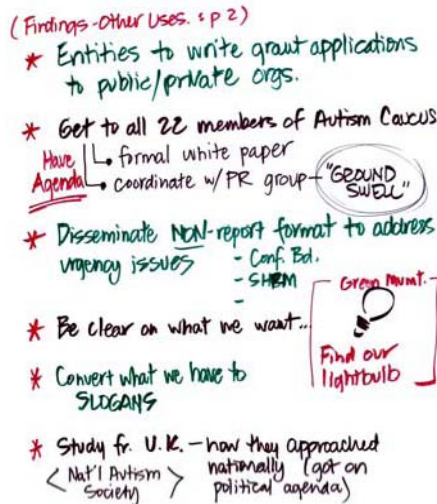 (Findings-Other Uses. : p 2)
* Entities to write grant applications
to public/private orgs.
* Get to all 22 members of Autism Caucus
Have
Agenda
formal white paper
coordinate w/ PR group - "GROUND
SWELL"
* Disseminate NON-report format to address
urgency issues
- Conf. Bd.
- SHRM
-
Green Mvmt.
Find our
lightbulb
* Be clear on what we want...
* Convert what we have to
SLOGANS
* Study fr. U.K. - how they approached
nationally (got on
political agenda)
< Nat'l Autism
Society >